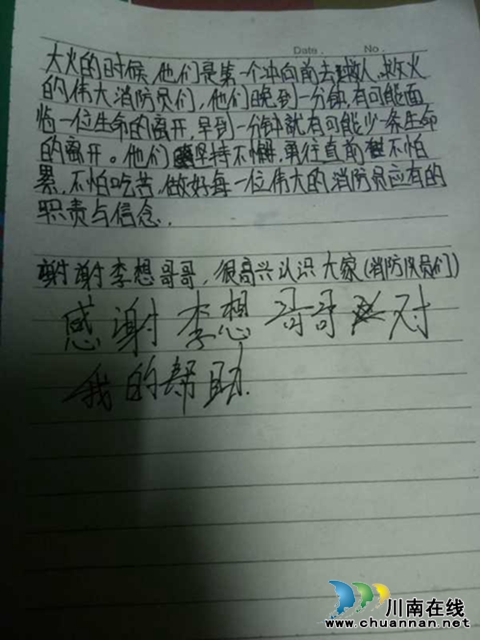 Date.  No.
大火的时候,他们是第一个冲向前去救人、救火
的伟大消防员们,他们晚到一分钟,有可能面
临一位生命的离开,早到一分钟就有可能少一条生命
的离开。他们坚持不懈,勇往直前,不怕
累,不怕吃苦,做好每一位伟大的消防员应有的
职责与信念.
谢谢李想哥哥,很高兴认识大家(消防队员们)
感谢李想哥哥对
我的帮助.
川南在线
www.chuannan.net